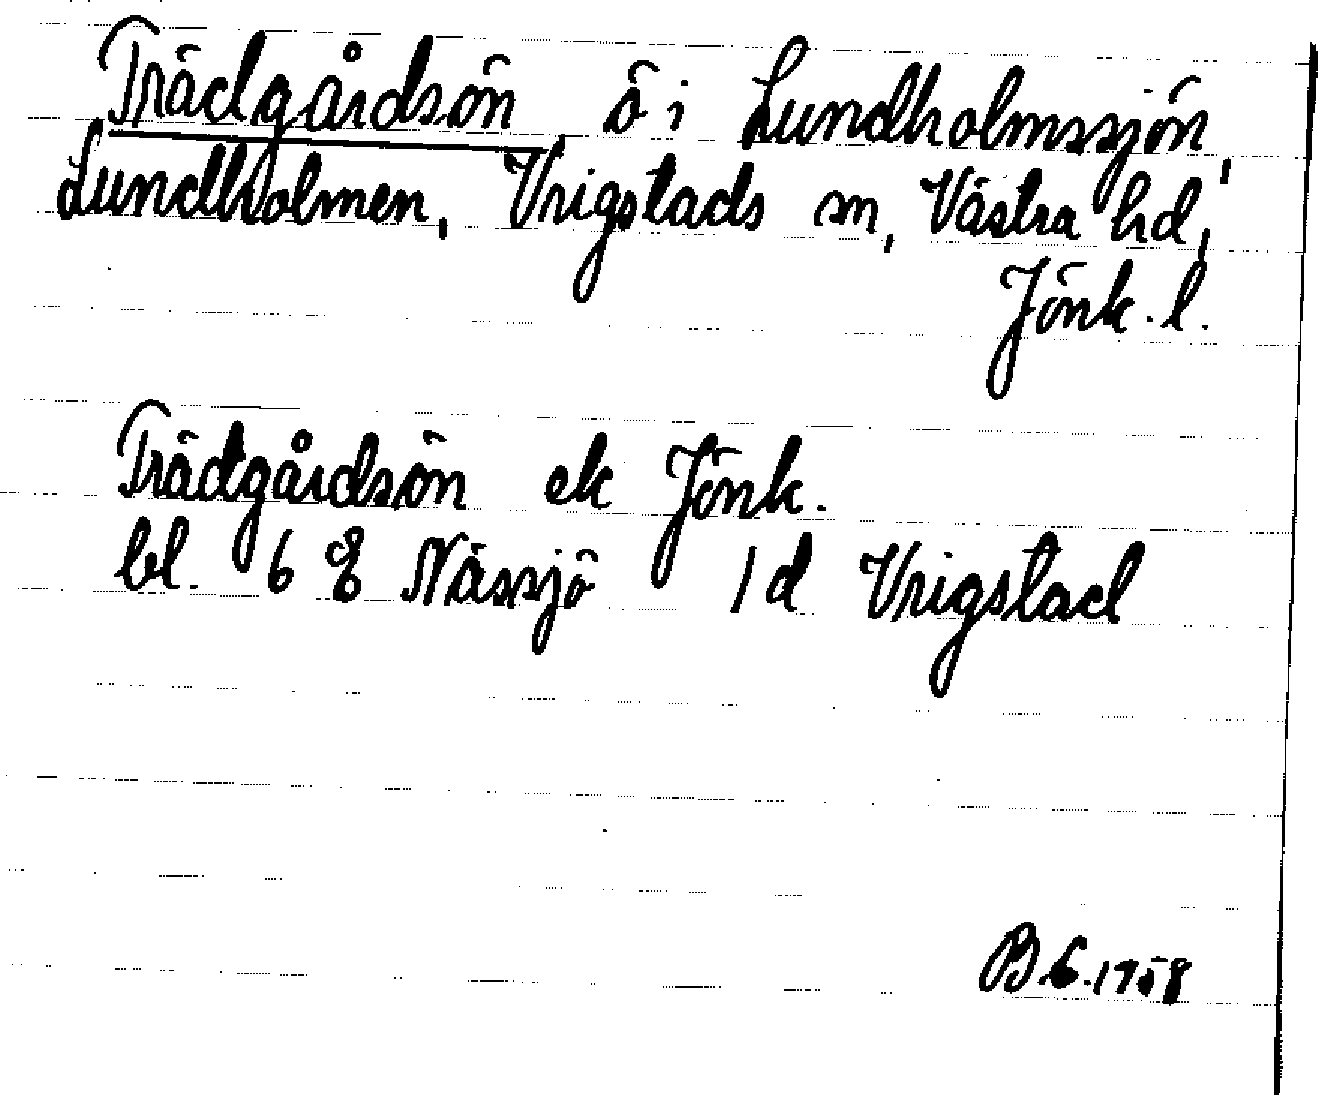 Trädgårdsön ö i Lundholmssjön,
Lundholmen, Vrigstads sn, Västra hd,
Jönk. l.
Trädgårdsön ek Jönk.
bl. 6 E Nässjö 1 d Vrigstad
B.G.1958